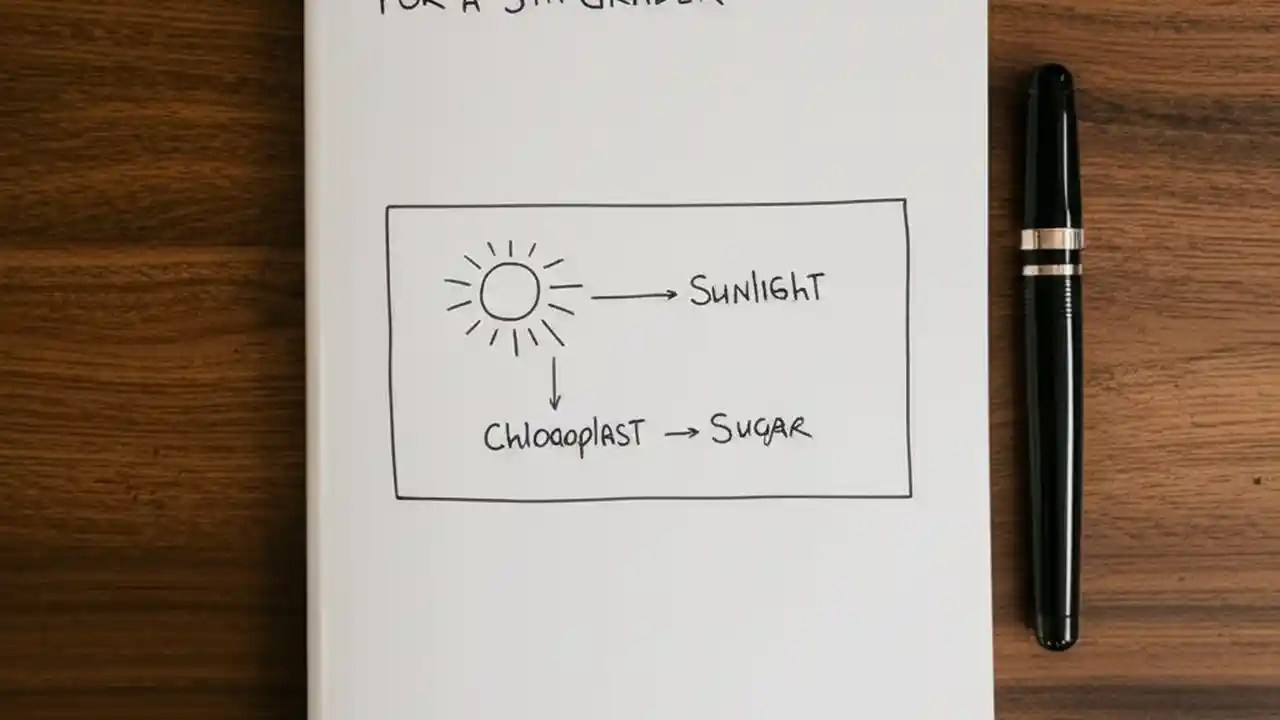 FOR A 5TH GRADER
→ SUNlIGHT
↓
ChlOROPlAST → SUGAR